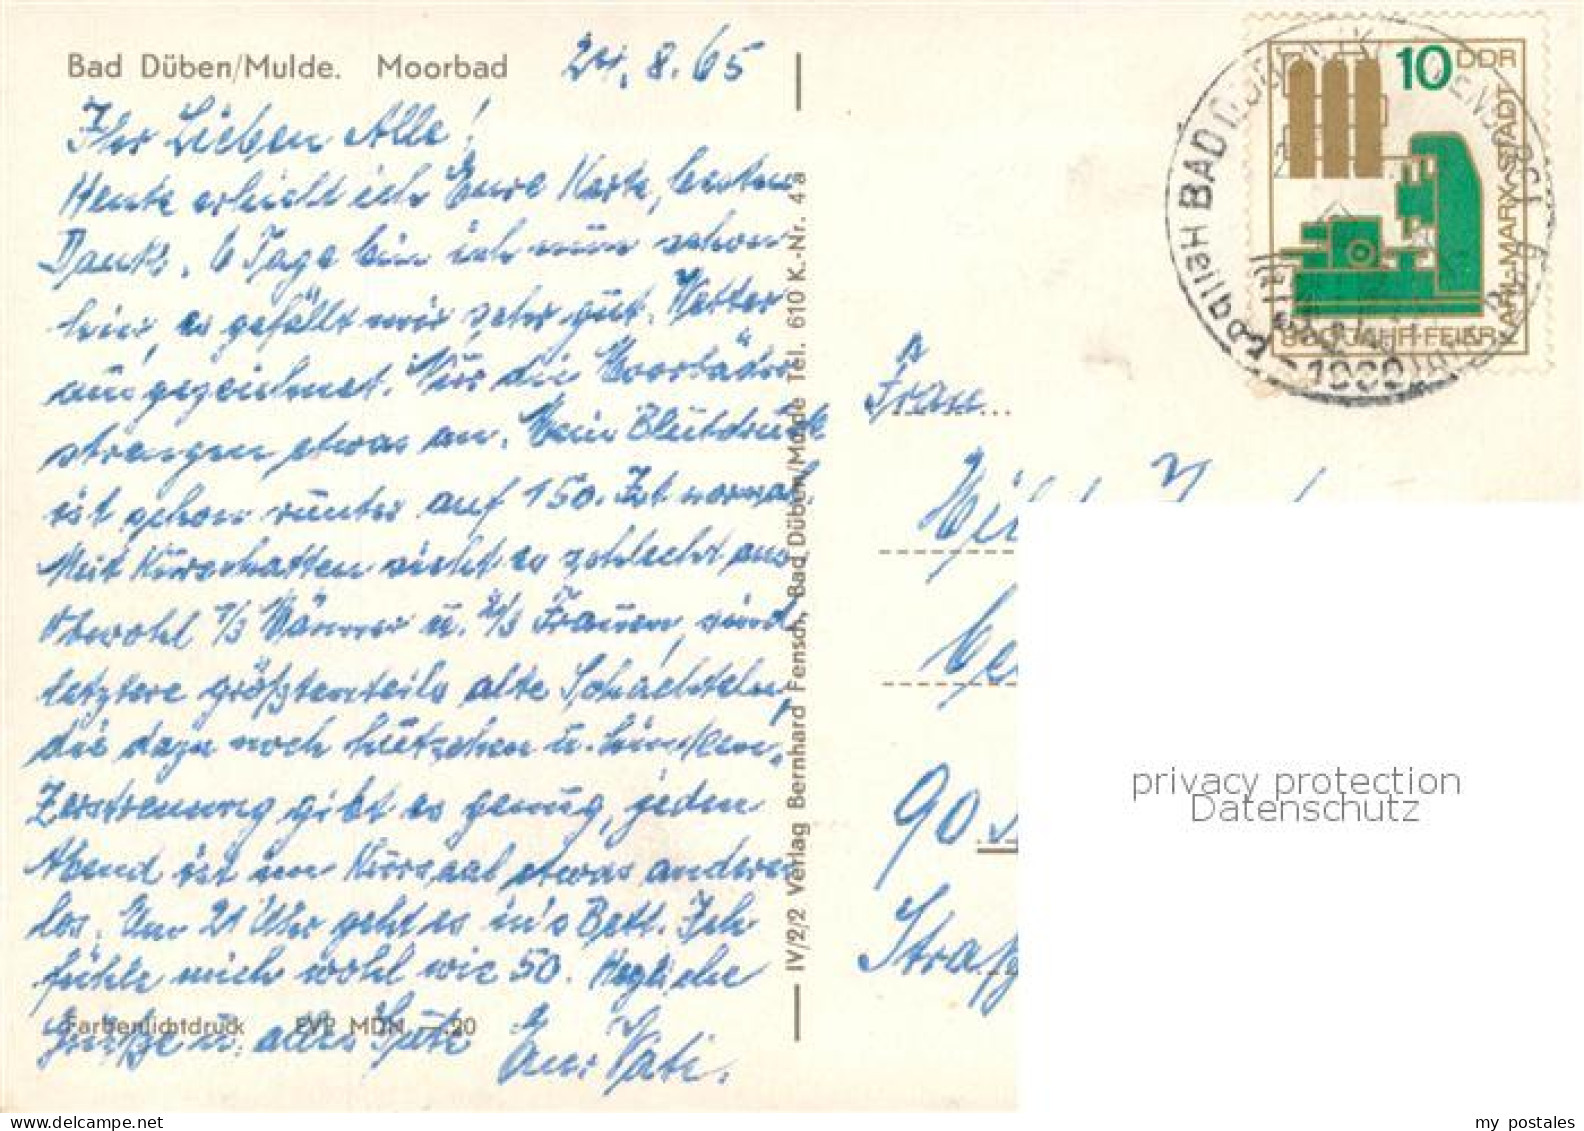 Bad Düben/Mulde. Moorbad 24. 8. 65
Ihr Lieben Alle!
Heute erhielt ich Eure Karte, besten
Dank. 6 Tage bin ich nun schon
hier, es gefällt mir sehr gut. Wetter
ausgezeichnet. Nur die Moorbäder
strengen etwas an. Mein Blutdruck
ist schon runter auf 150. Ist normal.
Mit Kurschatten sieht es schlecht aus
Obwohl 1/3 Männer u. 2/3 Frauen, sind
letztere größtenteils alte Schachteln,
die dazu noch hütschen u. hinken.
Zerstreuung gibt es genug, jeden
Abend ist im Kursaal etwas anderes
los. Um 21 Uhr geht es in's Bett. Ich
fühle mich wohl wie 50. Herzliche
Grüße u. alles Gute Euer Vati.
Farbenlichtdruck EVP MDN —.20
IV/2/2 Verlag Bernhard Fensch, Bad Düben/Mulde Tel. 610 K.-Nr. 4 a
10 DDR
KARL-MARX-STADT
800 JAHRFEIER
BAD
Frau
90
Straß
privacy protection
Datenschutz
my postales